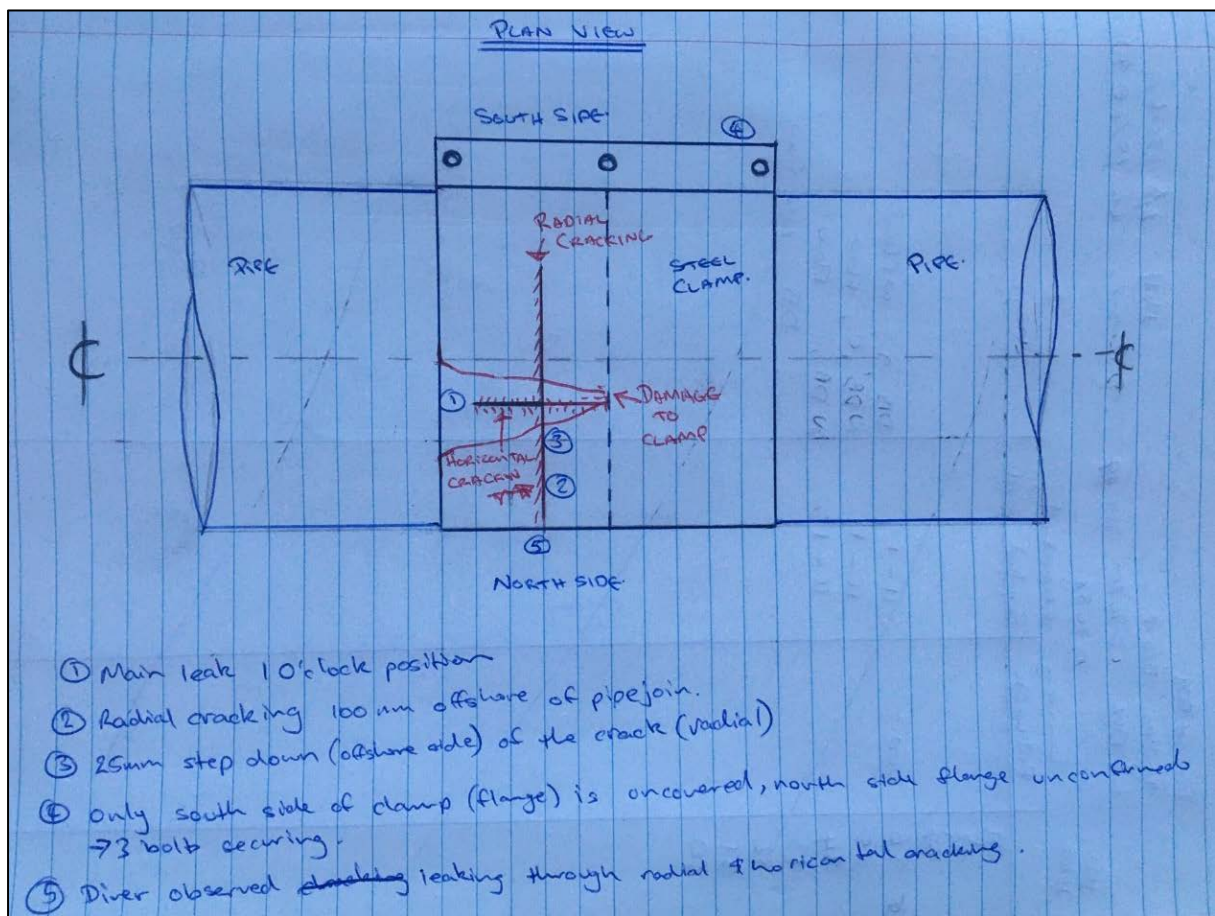 PLAN VIEW
SOUTH SIDE.
④
RADIAL
CRACKING
PIPE
STEEL
CLAMP.
PIPE.
①
DAMAGE
TO
CLAMP
③
HORICONTAL
CRACKIN
②
⑤
NORTH SIDE.
① Main leak 1 O'clock position
② Radial cracking 100mm offshore of pipejoin.
③ 25mm step down (offshore side) of the crack (radial)
④ Only south side of clamp (flange) is uncovered, north side flange unconfirmed
→ 3 bolts securing.
⑤ Diver observed leaking through radial & horicontal cracking.